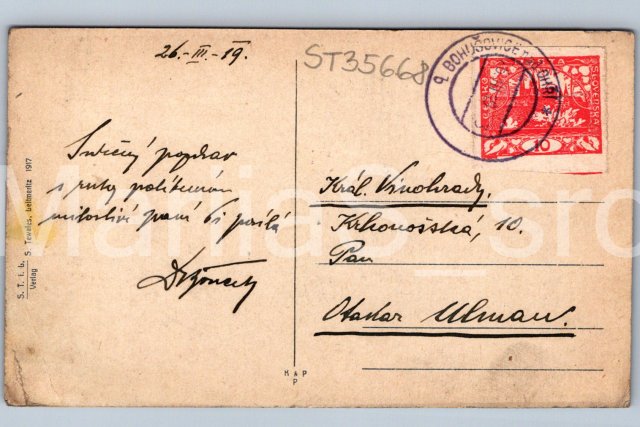 26.-III.-19.
ST35668
BOHUŠOVICE
ČESKO-SLOVENSKÁ
10
Srdečný pozdrav
s ruky políbením
milostivé paní Vi posílá
Král. Vinohrady.
Krkonošská, 10.
Pan
Otakar Ulman.
S. T. i. b.
Verlag S. Teweles, Leitmeritz 1917
K A P
P